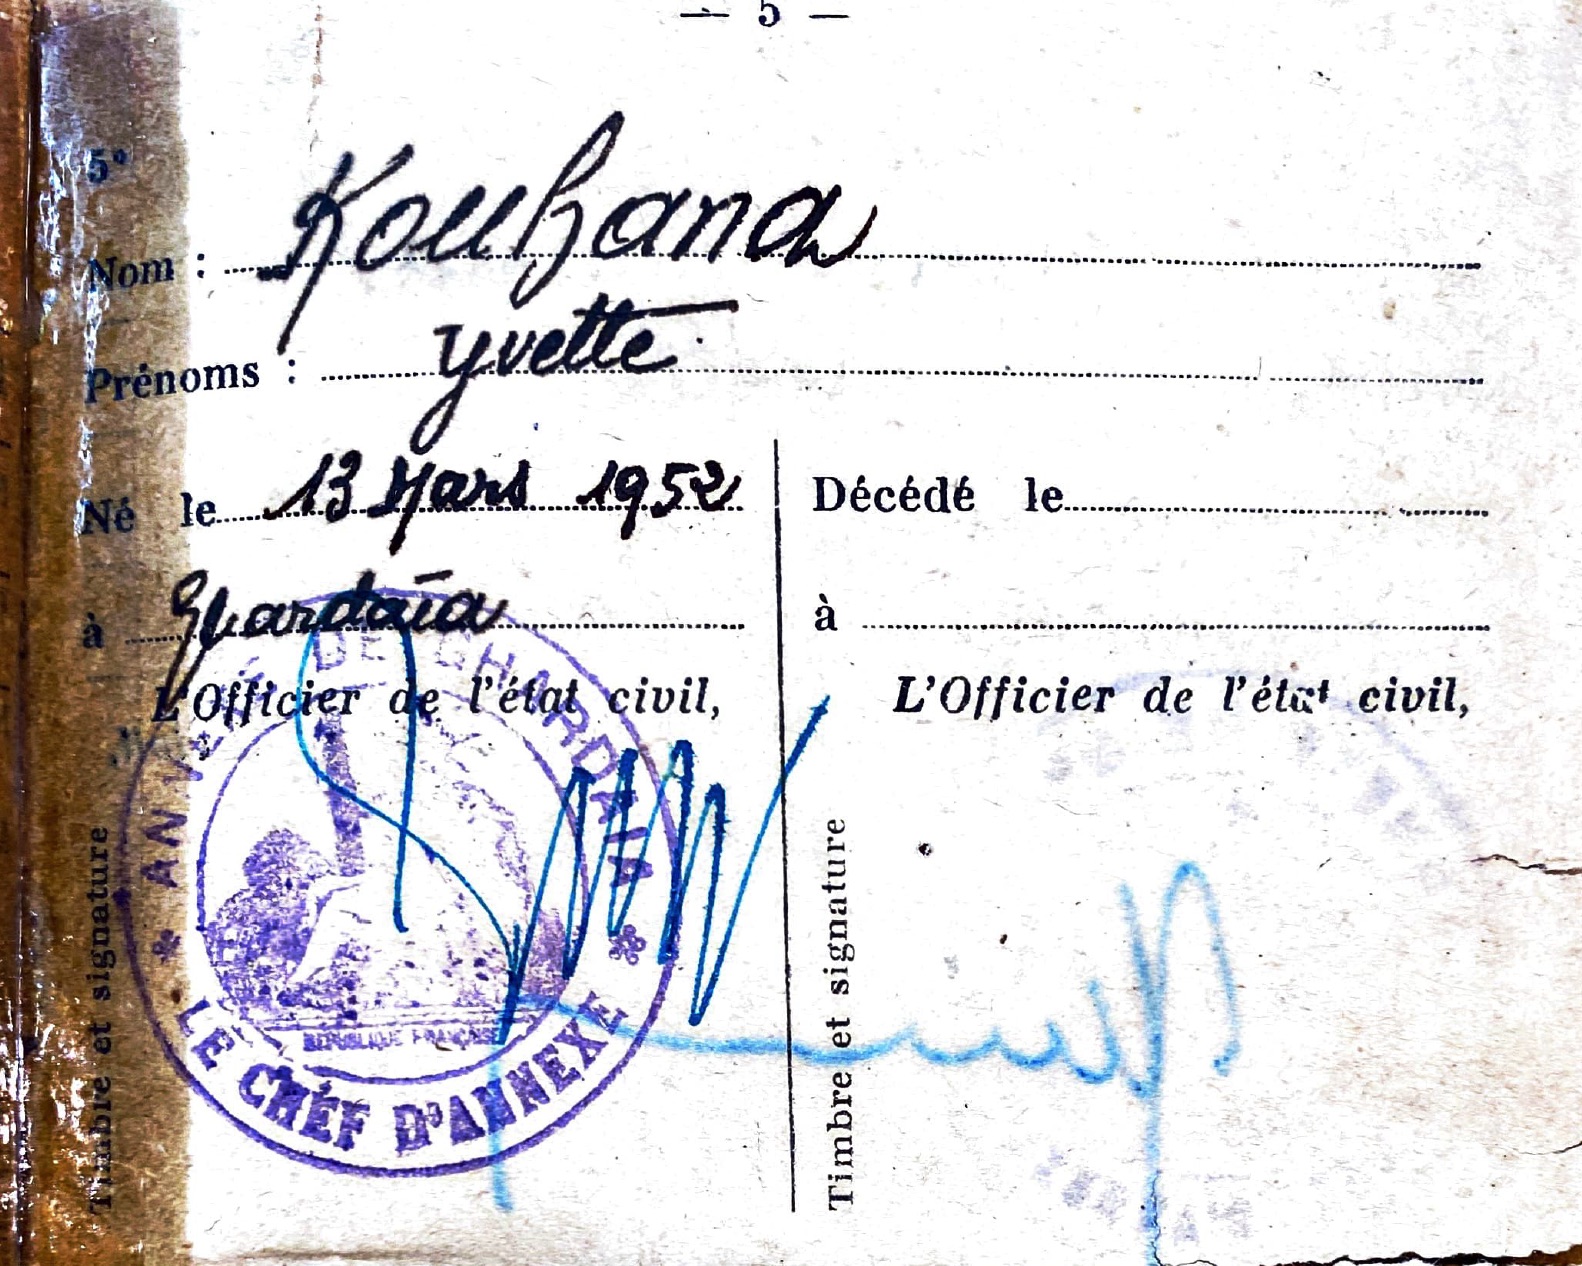 — 5 —
5°
Nom : Kouhana
Prénoms : Yvette
Né le 13 Mars 1952
à Ghardaïa
L'Officier de l'état civil,
Timbre et signature
ANNEXE DE GHARDAIA
REPUBLIQUE FRANÇAISE
LE CHEF D'ANNEXE
Décédé le
à
L'Officier de l'état civil,
Timbre et signature